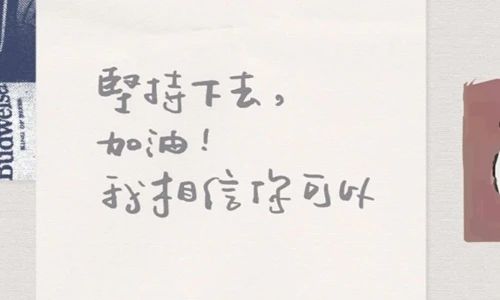 堅持下去,
加油!
我相信你可以
Budweiser
KING OF BEERS